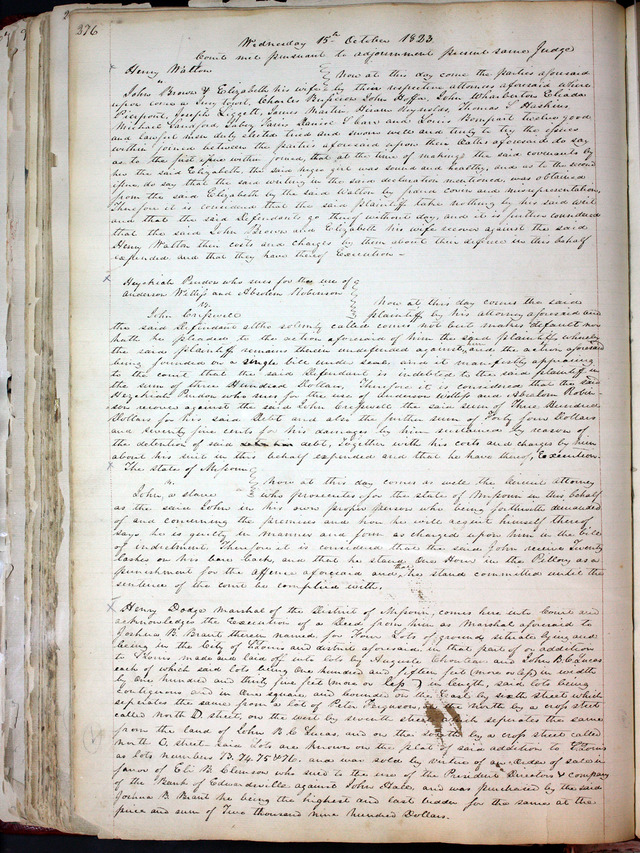 376
Wednesday 15th October 1823
Court met pursuant to adjournment present same Judge
Henry Walton
vs Now at this day come the parties aforesaid
John Brown & Elizabeth his wife by their respective attornies aforesaid where
upon come a Jury to wit, Charles John Hoffa, John Wharburton
Pierpont, Joseph Liggett, James Martin, Hiram Thomas L Haskins
Michael Sandford Daniel L and Louis twelve good
and lawful men duly elected tried and sworn well and truly to try the issues
within joined between the parties aforesaid upon their oaths aforesaid do say
as to the first issue within joined, that at the time of making the said covenants by
her the said Elizabeth, the said negro girl was sound and healthy, and as to the second
issue do say that the said writing in the said declaration mentioned was obtained
from the said Elizabeth by the said Walton by fraud covin and misrepresentation,
Therefore it is considered that the said plaintiff take nothing by his said writ
and that the said Defendants go thereof without day, and it is further considered
that the said John Brown and Elizabeth his wife recover against the said
Henry Walton their costs and charges by them about their defence in this behalf
expended and that they have thereof Execution —
Hezekiah who sues for the use of
Anderson and Absolom Robinson
vs. Now at this day comes the said
John Criswell plaintiff by his attorney aforesaid and
the said Defendant altho solemly called comes not but makes default nor
hath he pleaded to the action aforesaid of him the said plaintiff, whereby
the said plaintiff remains therein undefended against him, and the action aforesaid
being founded on a single bill under seal and it manifestly appearing
to the court that the said Defendant is indebted to the said plaintiff in
the sum of three Hundred Dollars, Therefore it is considered that the said
Hezekiah who sues for the use of Anderson and Absolom Robin-
son recover against the said John Criswell the said sum of Three Hundred
Dollars for his said Debt and also the further sum of Forty four Dollars
and seventy five cents for his damages by him sustained by reason of
the detention of said debt, together with his costs and charges by him
about his suit in this behalf expended and that he have thereof Execution.
The State of Missouri
vs. Now at this day comes as well the Circuit attorney
John, a slave who prosecutes for the State of Missouri in this behalf
as the said John in his own proper person who being forthwith demanded
of and concerning the premises and how he will acquit himself thereof
says he is guilty in manner and form as charged upon him in the bill
of indictment, Therefore it is considered that the said John receive Twenty
lashes on his bare back, and that he stand One Hour in the Pillory as a
punishment for the offence aforesaid and that he stand committed until the
sentence of the court be complied with.
Henry Dodge Marshal of the District of Missouri, comes here into Court and
acknowledges the Execution of a Deed from him as Marshal aforesaid to
Joshua B. Brant therein named for Four Lots of ground, situate lying and
being in the City of St Louis and district aforesaid, in that part of or addition
to St Louis made and laid off into lots by Auguste Chouteau and John B C Lucas
each of which said lots being One hundred and fifteen feet (more or less) in width
by One hundred and thirty five feet (more or less) in length, said lots being
contiguous and in One square and bounded on the East by sixth street which
seperates the same from a lot of Peter Ferguson, on the north by a cross street
called north D. street, on the west by seventh street which seperates the same
from the land of John B. C. Lucas, and on the south by a cross street called
north C. street said lots are known on the plat of said addition to St Louis
as lots numbers 73. 74. 75 & 76. and was sold by virtue of an Order of sale in
favor of Eli B. Clemson who sued to the use of the President Directors & company
of the Bank of Edwardsville against John Hall, and was purchased by the said
Joshua B. Brant he being the highest and last bidder for the same at the
price and sum of Two thousand nine hundred Dollars.